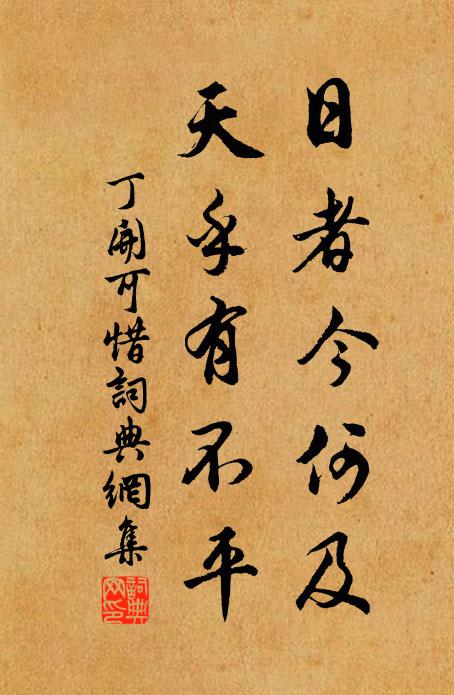 日者今何及
天乎有不平
丁開可惜詞典網集
詞典網印